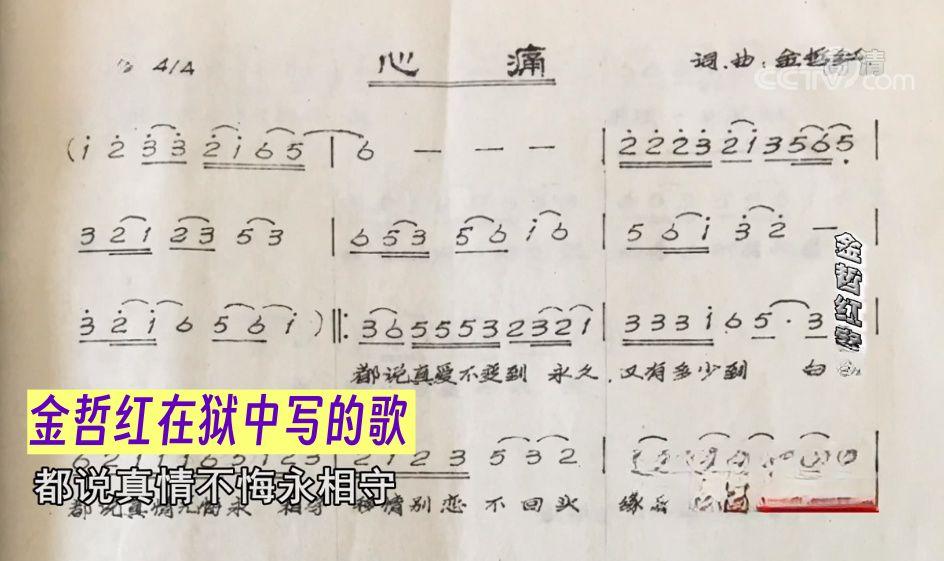 4/4 心 痛 词.曲:金哲红
CCTV.com 高清
(1 2 3 3 2 1 6 5 | 6 — — — | 2 2 2 3 2 1 3 5 6 5 |
3 2 1 2 3 5 3 | 6 5 3 5 6 1 6 | 5 6 1 3 2 — |
金哲红案
3 2 1 6 5 6 1 ) ‖: 3 6 5 5 5 3 2 3 2 1 | 3 3 3 1 6 5 · 3
都说真爱不变到 永久, 又有多少到 白
金哲红在狱中写的歌
5 3 2
都说真情不悔永相守
都说真情不悔永 相守 移情别恋 不 回头 缘